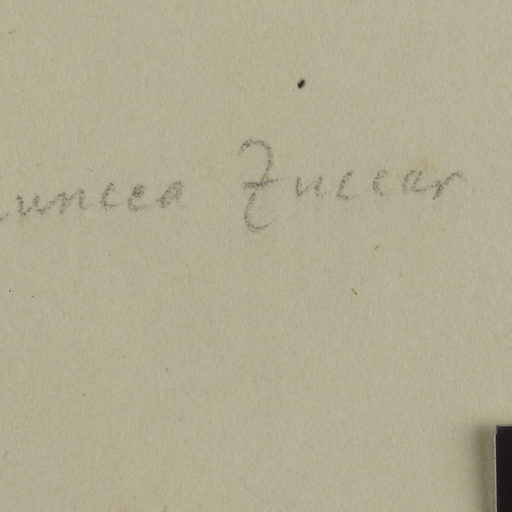 uncea Zuccar